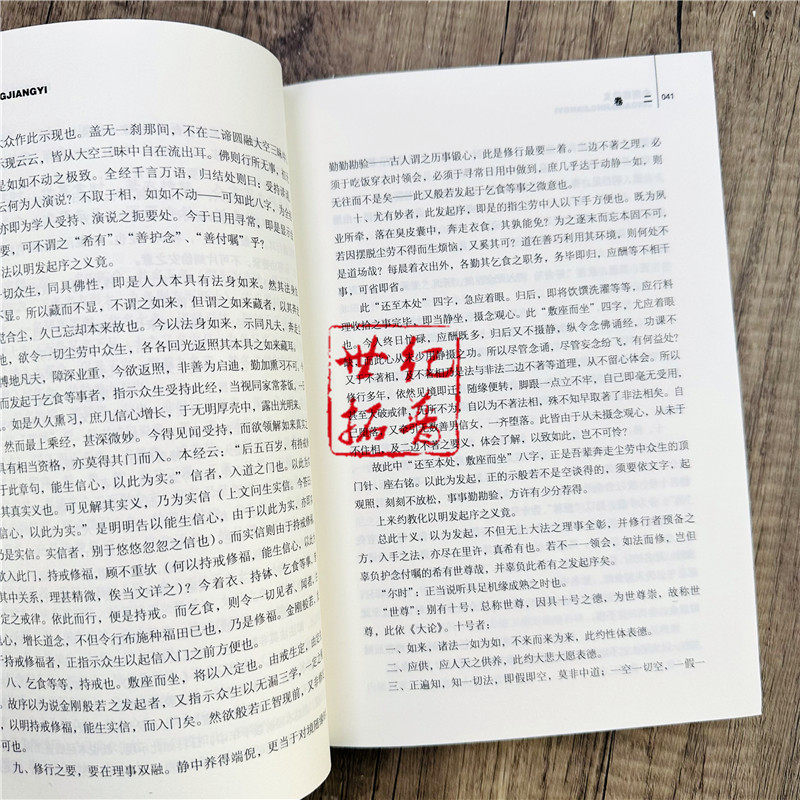 GJIANGYI
众作此示现也。盖无一刹那间，不在二谛圆融大空三昧
示现云云，皆从大空三昧中自在流出耳。佛则行所无事，
是如如不动之极致。全经千言万语，归结处则曰：受持读
云何为人演说？不取于相，如如不动——可知此八字，为全
亦即为学人受持、演说之扼要处。今于日用寻常，即是显示
要，可不谓之“希有”、“善护念”、“善付嘱”乎？
法以明发起序之义竟。
一切众生，同具佛性，即是人人本具有法身如来。然其法身
所以藏而不显，不谓之如来，但谓之如来藏者，以其
觉合尘，久已忘却本来故也。今以法身如来，示同凡夫，奔走
地，欲令一切尘劳中众生，各各回光返照其本具之如来藏耳
博地凡夫，障深业重，今欲返照，非善为启迪，勤加熏习不可
而发起于乞食等事者，指示众生受持此经，当视同家常茶饭，一
如是久久熏习，庶几信心增长，于无明厚壳中，露出光明来。
然而最上乘经，甚深微妙。今得见闻受持，而欲领解如来真实
具有相当资格，亦莫得其门而入。本经云：“后五百岁，有持戒
于此章句，能生信心，以此为实。”信者，入道之门也。以此
可见解其实义，乃为实信（上文问生实信，今答曰
信心，以此为实。”是明明告以能生信心，由于以此为实，亦
乃是实信。实信者，别于悠悠忽忽之信也）。而实信则由于持戒修
欲入此门，持戒修福，顾不重欤（何以持戒修福，能生信心，以此
其中关系，理甚精微，俟当文详之）？今着衣、持钵、乞食等事，
定之戒律。依此而行，便是持戒。而乞食，则令一切见者、闻者，
心，增长道念，不但令行布施种福田已也，乃是修福。金刚般若，
于持戒修福者，正指示众生以起信入门之前方便也。
八、乞食等等，持戒也。敷座而坐，将以入定也。由戒生定，由定
故序以为说金刚般若之发起者，又指示众生以无漏三学，一定之
以明持戒修福，能生实信，而入门矣。然欲般若正智现前，又
可也。
九、修行之要，要在理事双融。静中养得端倪，更当于对境
卷 二
041
勤勤勘验——古人谓之历事锻心，此是修行最要一着。二边不著之理，必
须于吃饭穿衣时领会，必须于寻常日用中做到，庶几乎达于动静一如，则
无往而不是矣——此又般若发起于乞食等事之微意也。
十、尤有妙者，此发起序，即是的指尘劳中人以下手方便也。既为夙
业所牵，落在臭皮囊中，奔走衣食，其孰能免？为之逐末而忘本固不可，
若因摆脱尘劳不得而生烦恼，又奚其可？道在善巧利用其环境，则何处不
是道场哉？每晨着衣出外，各勤其乞食之职务，务毕即归，应酬等不相干
事，可省即省。
此“还至本处”四字，急应着眼。归后，即将饮馔洗濯等等，应行料
理收拾之事完毕，即当静坐，摄念观心。此“敷座而坐”四字，尤应着眼
也。人终日忙碌，应酬既多，归后又不摄静，纵令念佛诵经，功课不
此心从未少用静摄之功。所以尽管念诵，尽管妄念纷飞，有何益处？
又于不著相，及不著相是法与非法二边不著等道理，从不留心体会。所以
修行多年，依然见境即迁，随缘便转，脚跟一点立不牢，自己即毫无受用，
甚至大破戒律，无所不为，自以为不著法相，殊不知早取著了非法相矣。自
善男信女，一齐堕落。此皆由于从未摄念观心，从未于
不住相，及二边不著之要义，体会了解，以致如此，岂不可怜？
故此中“还至本处，敷座而坐”八字，正是吾辈奔走尘劳中众生的顶
门针、座右铭。以此为发起，正的示般若不是空谈得的，须要依文字，起
观照，刻刻不放松，事事勤勘验，方许有少分荐得。
上来约教化以明发起序之义竟。
总此十义，以为发起，不但无上大法之理事全彰，并修行者预备之
方，入手之法，亦尽在里许，真希有也。若不一一领会，如法而修，岂但
辜负护念付嘱的希有世尊哉，并辜负此希有之发起序矣。
“尔时”：正当说听具足机缘成熟之时也。
“世尊”：别有十号，总称世尊，因具十号之德，为世尊崇，故称世
尊，此依《大论》。十号者：
一、如来，诸法一如为如，不来而来为来，此约性体表德。
二、应供，应人天之供养，此约大悲大愿表德。
三、正遍知，知一切法，即假即空，莫非中道；一空一切空，一假一
世纪
拓普